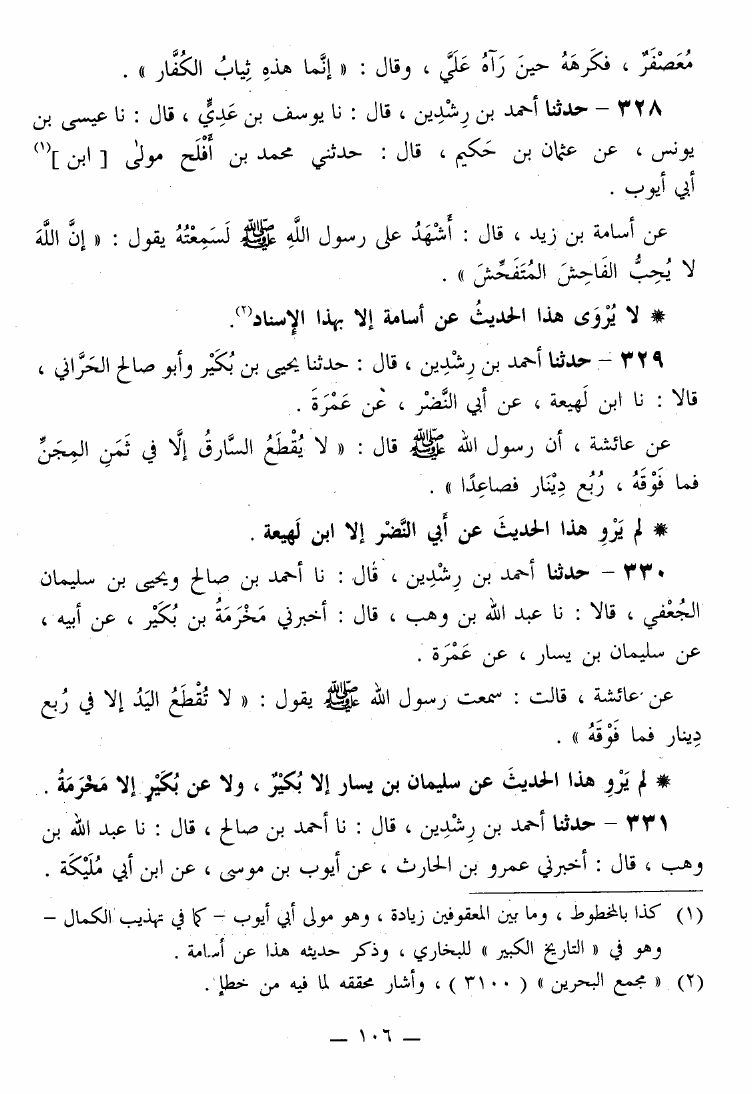 مُعَصْفَرٌ ، فكَرِهَهُ حينَ رَآهُ عَلَيَّ ، وقال : « إنَّما هذهِ ثِيابُ الكُفَّار » .
٣٢٨ – حدثنا أحمد بن رِشْدِين ، قال : نا يوسف بن عَدِيٍّ ، قال : نا عيسى بن
يونس ، عن عثمان بن حَكيم ، قال : حدثني محمد بن أَفْلَح مولىٰ [ ابن ](١)
أبي أيوب .
عن أسامة بن زيد ، قال : أَشْهَدُ على رسول اللَّهِ ﷺ لَسَمِعْتُهُ يقول : « إنَّ اللَّهَ
لا يُحِبُّ الفَاحِشَ المُتَفَحِّشَ » .
* لا يُرْوَى هذا الحديثُ عن أسامة إلا بهذا الإسناد(٢).
٣٢٩ – حدثنا أحمد بن رِشْدِين ، قال : حدثنا يحيى بن بُكَيْر وأبو صالح الحَرَّاني ،
قالا : نا ابن لَهيعة ، عن أبي النَّضْر ، عَن عَمْرَةَ .
عن عائشة ، أن رسول الله ﷺ قال : « لا يُقْطَعُ السَّارقُ إلَّا في ثَمَنِ المِجَنِّ
فما فَوْقَهُ ، رُبُع دِيْنَار فصاعِدًا » .
* لم يَرْوِ هذا الحديثَ عن أبي النَّضْر إلا ابن لَهيعة .
٣٣٠ – حدثنا أحمد بن رِشْدِين ، قال : نا أحمد بن صالح ويحيى بن سليمان
الجُعْفي ، قالا : نا عبد الله بن وهب ، قال : أخبرني مَخْرَمَةُ بن بُكَيْر ، عن أبيه ،
عن سليمان بن يسار ، عن عَمْرَة .
عن عائشة ، قالت : سمعت رسول الله ﷺ يقول : « لا تُقْطَعُ اليَدُ إلا في رُبع
دِينار فما فَوْقَهُ » .
* لم يَرْوِ هذا الحديثَ عن سليمان بن يسار إلا بُكَيْرٌ ، ولا عن بُكَيْرٍ إلا مَخْرَمَةُ .
٣٣١ – حدثنا أحمد بن رِشْدِين ، قال : نا أحمد بن صالح ، قال : نا عبد الله بن
وهب ، قال : أخبرني عمرو بن الحارث ، عن أيوب بن موسى ، عن ابن أبي مُلَيْكَة .
(١) كذا بالمخطوط ، وما بين المعقوفين زيادة ، وهو مولى أبي أيوب – كما في تهذيب الكمال –
وهو في « التاريخ الكبير » للبخاري ، وذكر حديثه هذا عن أسامة .
(٢) « مجمع البحرين » ( ٣١٠٠ ) ، وأشار محققه لما فيه من خطإ .
— ١٠٦ —